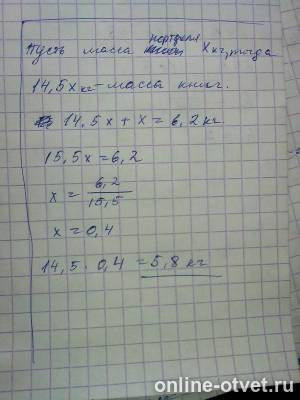 Пусть масса портфеля х кг, тогда
14,5х кг - масса книг.
14,5х + х = 6,2 кг.
15,5х = 6,2
х = 6,2/15,5
х = 0,4
14,5 · 0,4 = 5,8 кг
online-otvet.ru